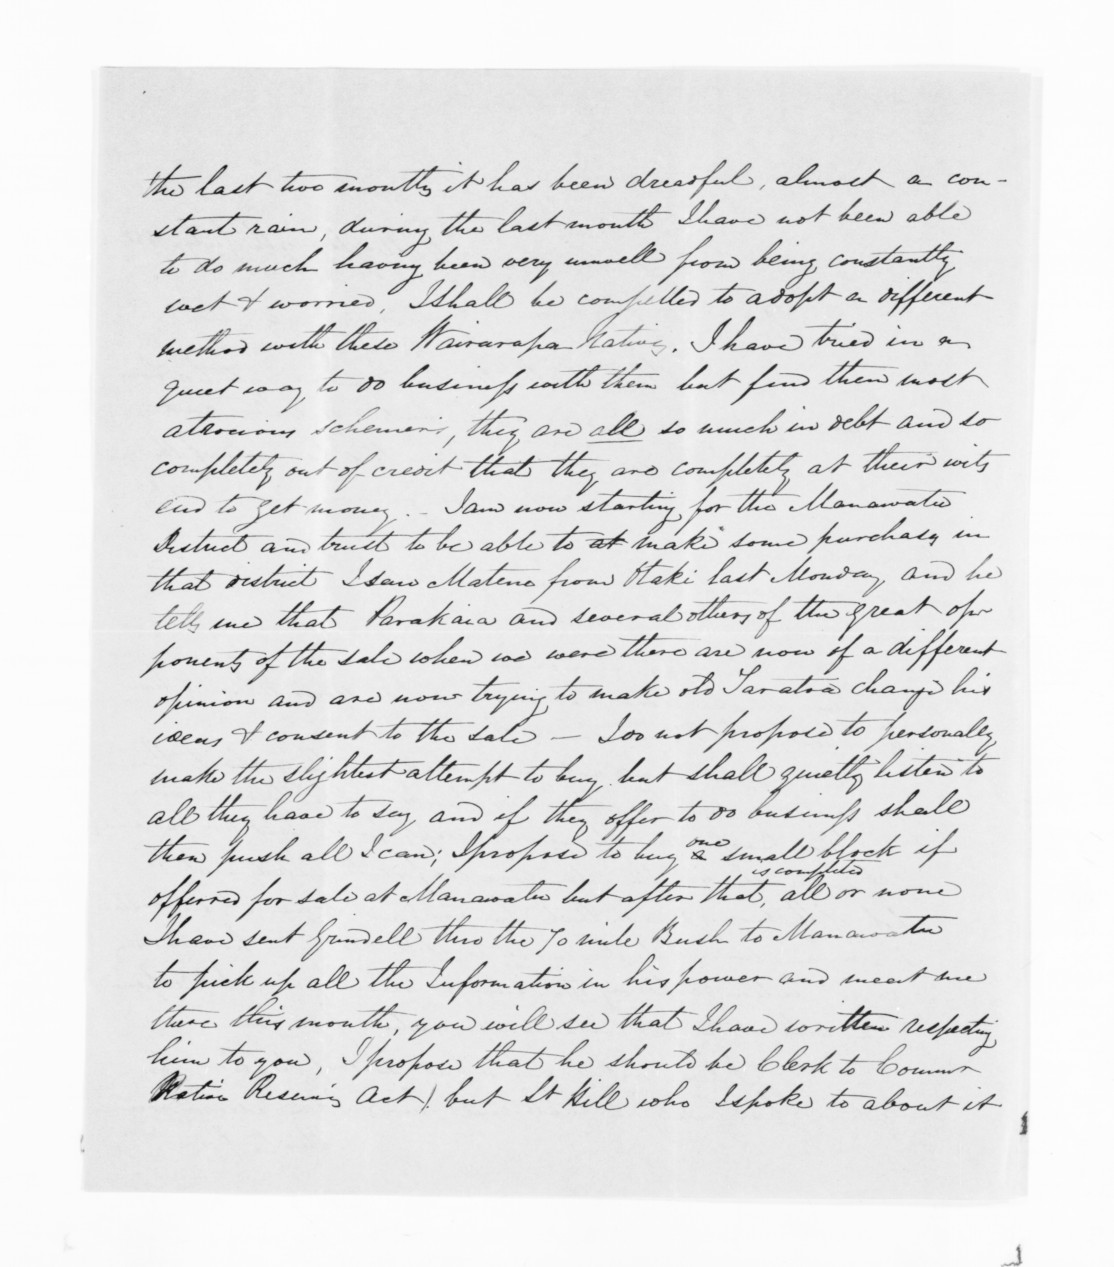 the last two months it has been dreadful, almost a con-
stant rain, during the last month I have not been able
to do much having been very unwell from being constantly
wet & worried, I shall be compelled to adopt a different
method with these Wairarapa Natives. I have tried in a
quiet way to do business with them but find them most
atrocious schemers, they are all so much in debt and so
completely out of credit that they are completely at their wits
end to get money. - I am now starting for the Manawatu
District and trust to be able to at make some purchases in
that district I saw Matene from Otaki last Monday and he
tells me that Parakaia and several others of the great op-
ponents of the sale when we were there are now of a different
opinion and are now trying to make old Taratoa change his
ideas & consent to the sale — I do not propose to personally
make the slightest attempt to buy but shall quietly listen to
all they have to say and if they offer to do business shall
then push all I can; I propose to buy a one small block if
offered for sale at Manawatu but after that is completed, all or none
I have sent Grindell thro the 70 mile Bush to Manawatu
to pick up all the Information in his power and meet me
there this month, you will see that I have written respecting
him to you, I propose that he should be Clerk to Commr
Native Reserves Act! but St Hill who I spoke to about it